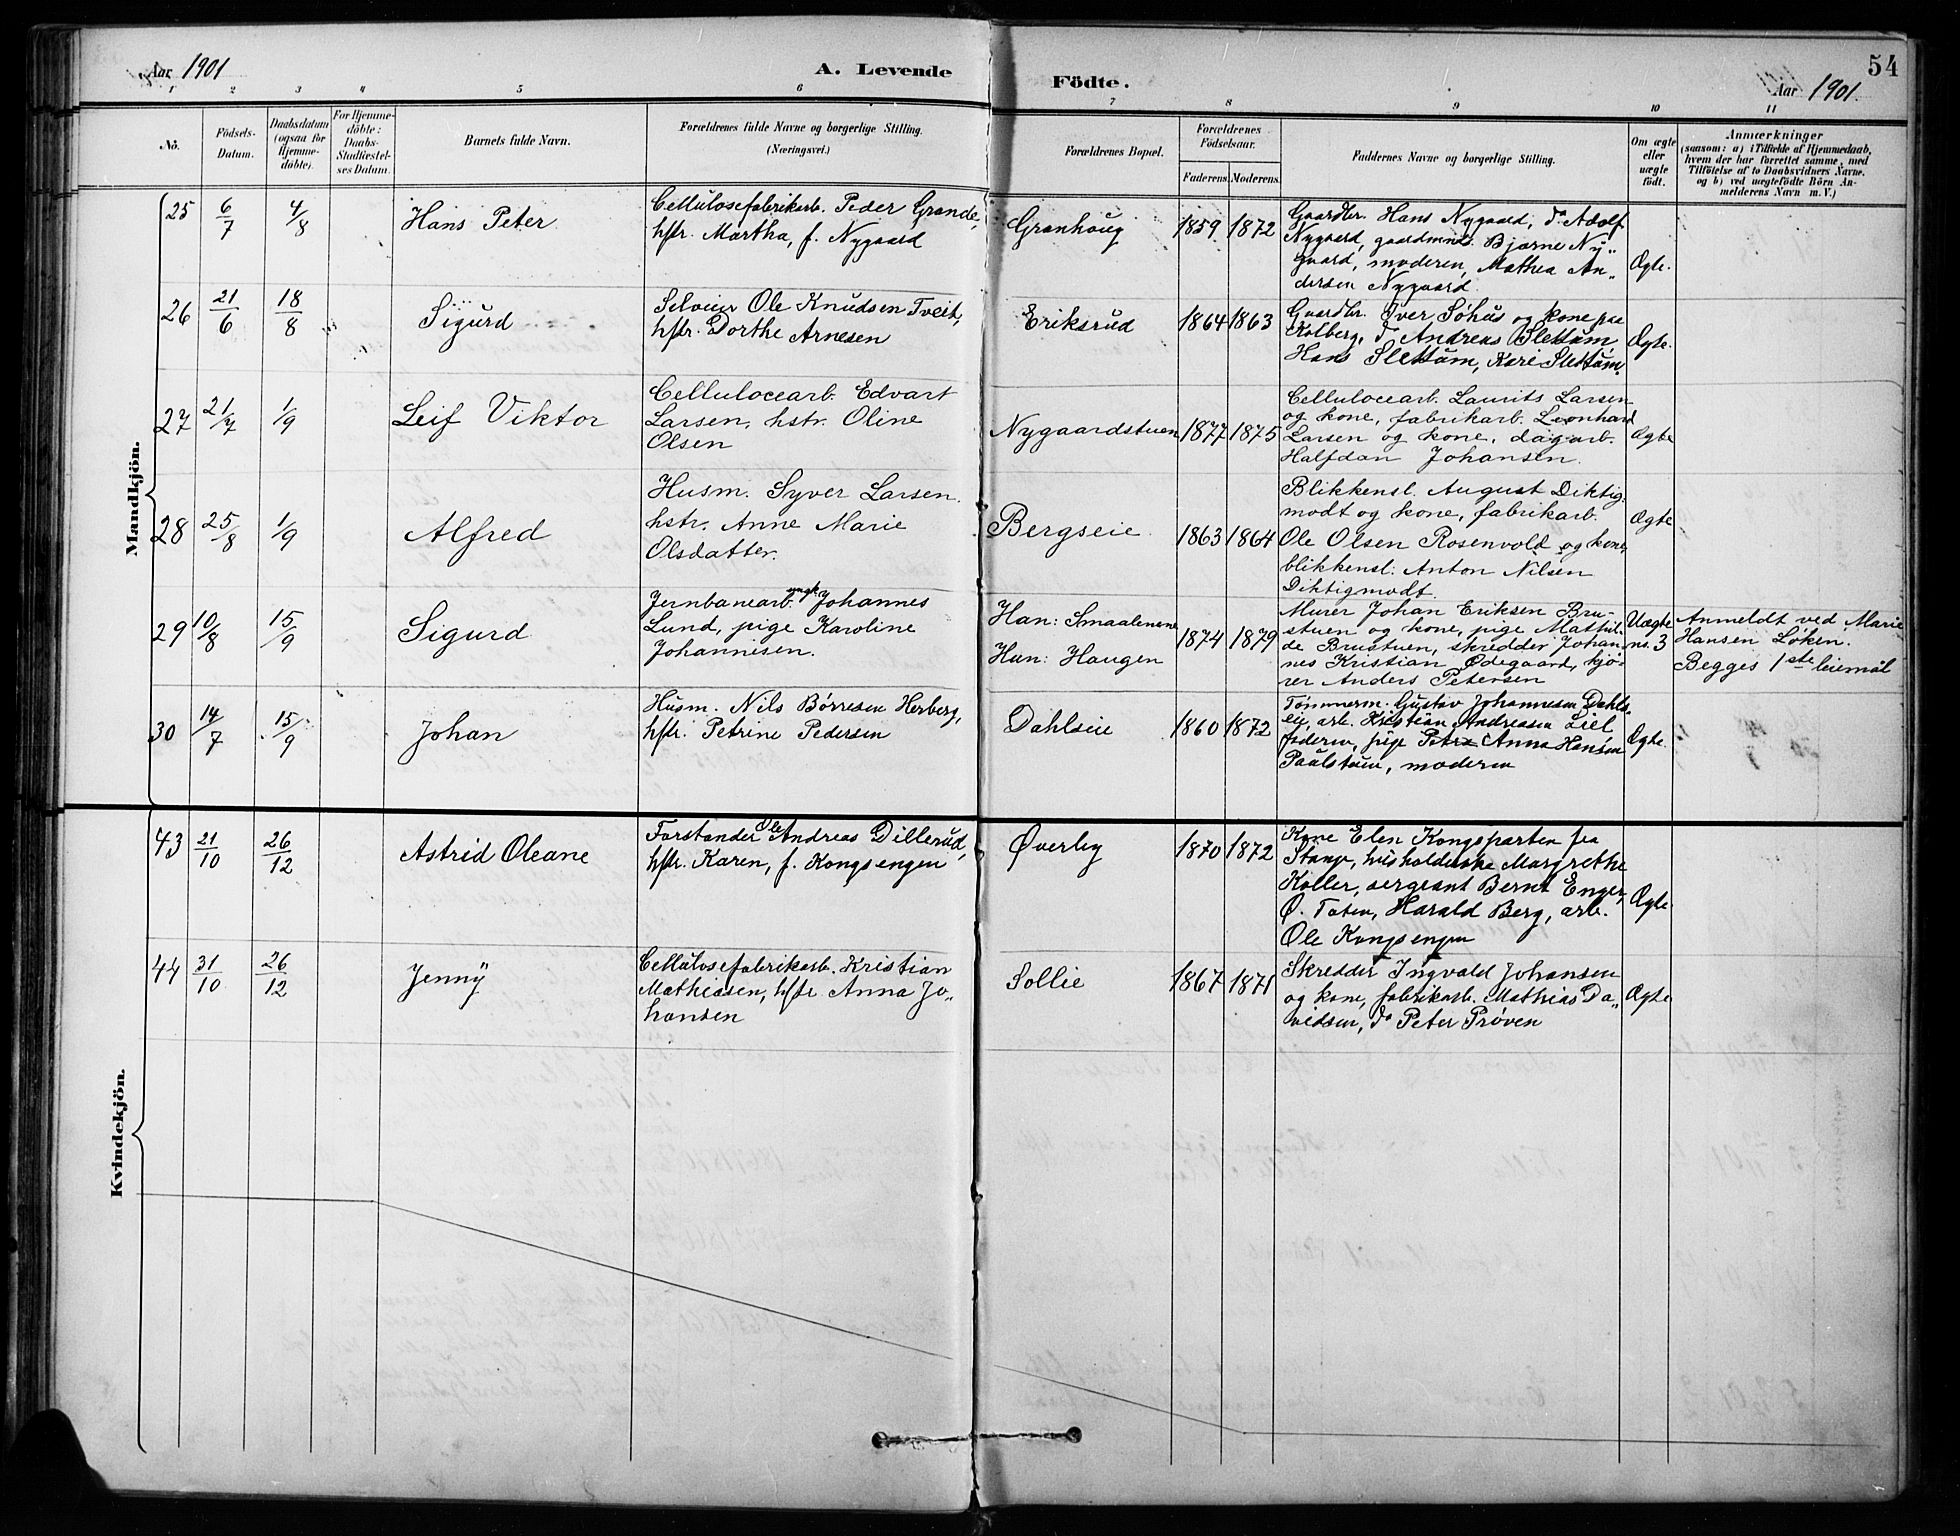 54
Aar 1901
A. Levende Födte.
Aar 1901.
1 2 3 4 5 6 7 8 9 10 11
No.
Födsels-Datum.
Daabsdatum (ogsaa for Hjemme-döbte).
For Hjemme-döbte: Daabs-Stadfæstel-ses Datum.
Barnets fulde Navn.
Forældrenes fulde Navne og borgerlige Stilling.
(Næringsvei.)
Forældrenes Bopæl.
Forældrenes Födselsaar.
Faderens. Moderens.
Faddernes Navne og borgerlige Stilling.
Om ægte eller uægte født.
Anmærkninger
(saasom: a) i Tilfælde af Hjemmedaab,
hvem der har forrettet samme, med
Tilföielse af to Daabsvidners Navne.
og b) ved uægtefödte Börn An-
melderens Navn m. V.)
Mandkjön.
25 6/7 4/8 Hans Peter
Cellulosefabrikarb. Peder Grande,
hstr. Martha, f. Nygaard
Granhoug 1859 1872
Gaardbr. Hans Nygaard, do Adolf
Nygaard, gaardmnd. Bjarne Ny-
gaard, moderen, Mathea An-
dersen Nygaard.
Ægte.
26 21/6 18/8 Sigurd
Selveier Ole Knudsen Tveit,
hstr. Dorthe Arnesen
Eriksrud 1864 1863
Gaardbr. Iver Sohus og kone paa
Kolberg, do Andreas Slettum,
Hans Slettum, Kari Slettum.
Ægte.
27 21/7 1/9 Leif Viktor
Cellulocearb. Edvart
Larsen, hstr. Oline
Olsen
Nygaardstuen 1877 1875
Cellulocearb. Laurits Larsen
og kone, fabrikarb. Leonhard
Larsen og kone, dagarb.
Halfdan Johansen.
Ægte
28 25/8 1/9 Alfred
Husm. Syver Larsen.
hstr. Anne Marie
Olsdatter.
Bergseie. 1863 1864
Blikkensl. August Diktig-
modt og kone, fabrikarb.
Ole Olsen Rosenvold og kone,
blikkensl. Anton Nilsen
Diktigmodt.
Ægte
29 10/8 15/9 Sigurd
Jernbanearb. ungk. Johannes
Lund, pige Karoline
Johannesen.
Han: Smaalenene
Hun: Haugen
1874 1879
Murer Johan Eriksen Bru-
stuen og kone, pige Mathil-
de Brustuen, skredder Johan-
nes Kristian Ødegaard, kjø-
rer Anders Petersen
Uægte
ns. 3
Anmeldt ved Marie
Hansen Løken.
Begges 1ste leiemål
30 14/7 15/9 Johan
Husm. Nils Børresen Herberg,
hstr. Petrine Pedersen
Dahlseie 1860 1872
Tømmerm. Gustav Johannesen Dahls-
eie, arb. Kristian Andreasen Liel
faderen, pige Petra Anna Hansen
Paalstuen, moderen
Ægte.
Kvindekjön.
43 21/10 26/12 Astrid Oleane
Forstander Ole Andreas Dillerud,
hstr. Karen, f. Kongsengen
Øverby 1870 1872
Kone Elen Kongsparten fra
Stange, husholderske Margrethe
Koller, sergeant Bernt Enger,
Ø. Toten, Harald Berg, arb.
Ole Kongsengen
Ægte.
44 31/10 26/12 Jenny
Cellulosefabrikarb. Kristian
Mathiasen, hstr. Anna Jo-
hansen
Sollie 1867 1871
Skredder Ingvald Johansen
og kone, fabrikarb. Mathias Da-
vidsen, do Peter Prøven
Ægte